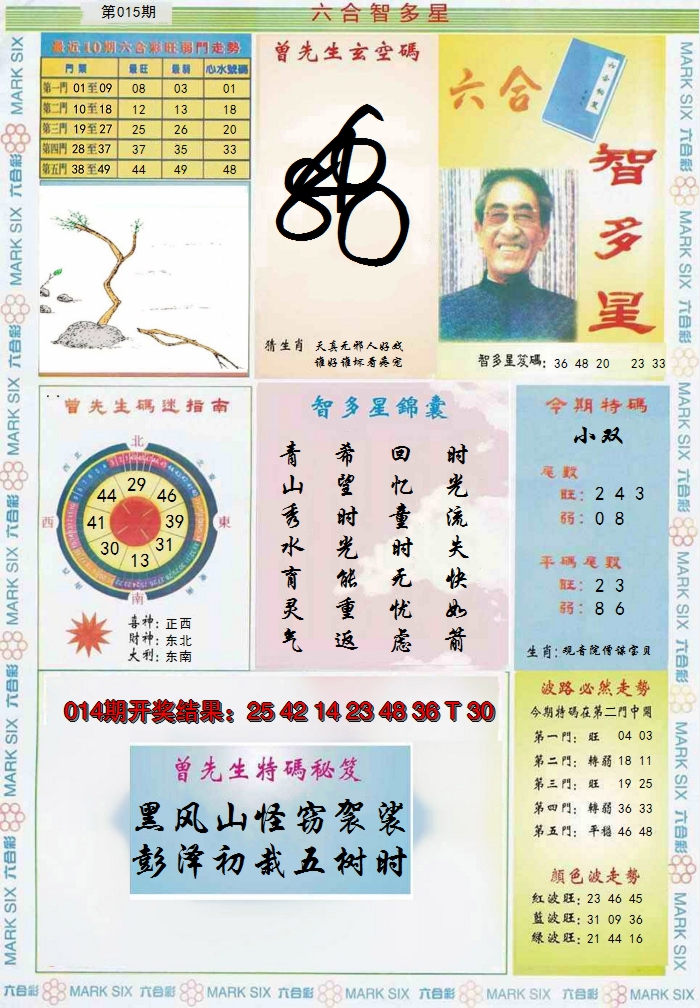 第015期
六合智多星
最近10期六合彩旺弱門走勢
門類 最旺 最弱 心水號碼
第一門 01至09 08 03 01
第二門 10至18 12 13 18
第三門 19至27 25 26 20
第四門 28至37 37 35 33
第五門 38至49 44 49 48
曾先生玄空碼
猜生肖 天真无邪人好戏
谁好谁坏看蒋宠
六合
六合秘笈
智多星
智多星笈碼: 36 48 20 23 33
曾先生碼迷指南
北
西北 東北
西 東
南
29
44 46
41 39
30 31
13
喜神: 正西
財神: 东北
大利: 东南
智多星錦囊
时光流失快如箭
回忆童时无忧虑
希望时光能重返
青山秀水育灵气
今期特碼
小双
尾數
旺: 2 4 3
弱: 0 8
平碼尾數
旺: 2 3
弱: 8 6
生肖: 观音院僧谋宝贝
014期开奖结果: 25 42 14 23 48 36 T 30
曾先生特碼秘笈
黑风山怪窃袈裟
彭泽初栽五树时
波路必然走勢
今期特碼在第二門中開
第一門: 旺 04 03
第二門: 轉弱 18 11
第三門: 旺 19 25
第四門: 轉弱 36 33
第五門: 平穩 46 48
顏色波走勢
紅波旺: 23 46 45
藍波旺: 31 09 36
綠波旺: 21 44 16
MARK SIX 六合彩 MARK SIX 六合彩 MARK SIX 六合彩 MARK SIX 六合彩 MARK SIX 六合彩